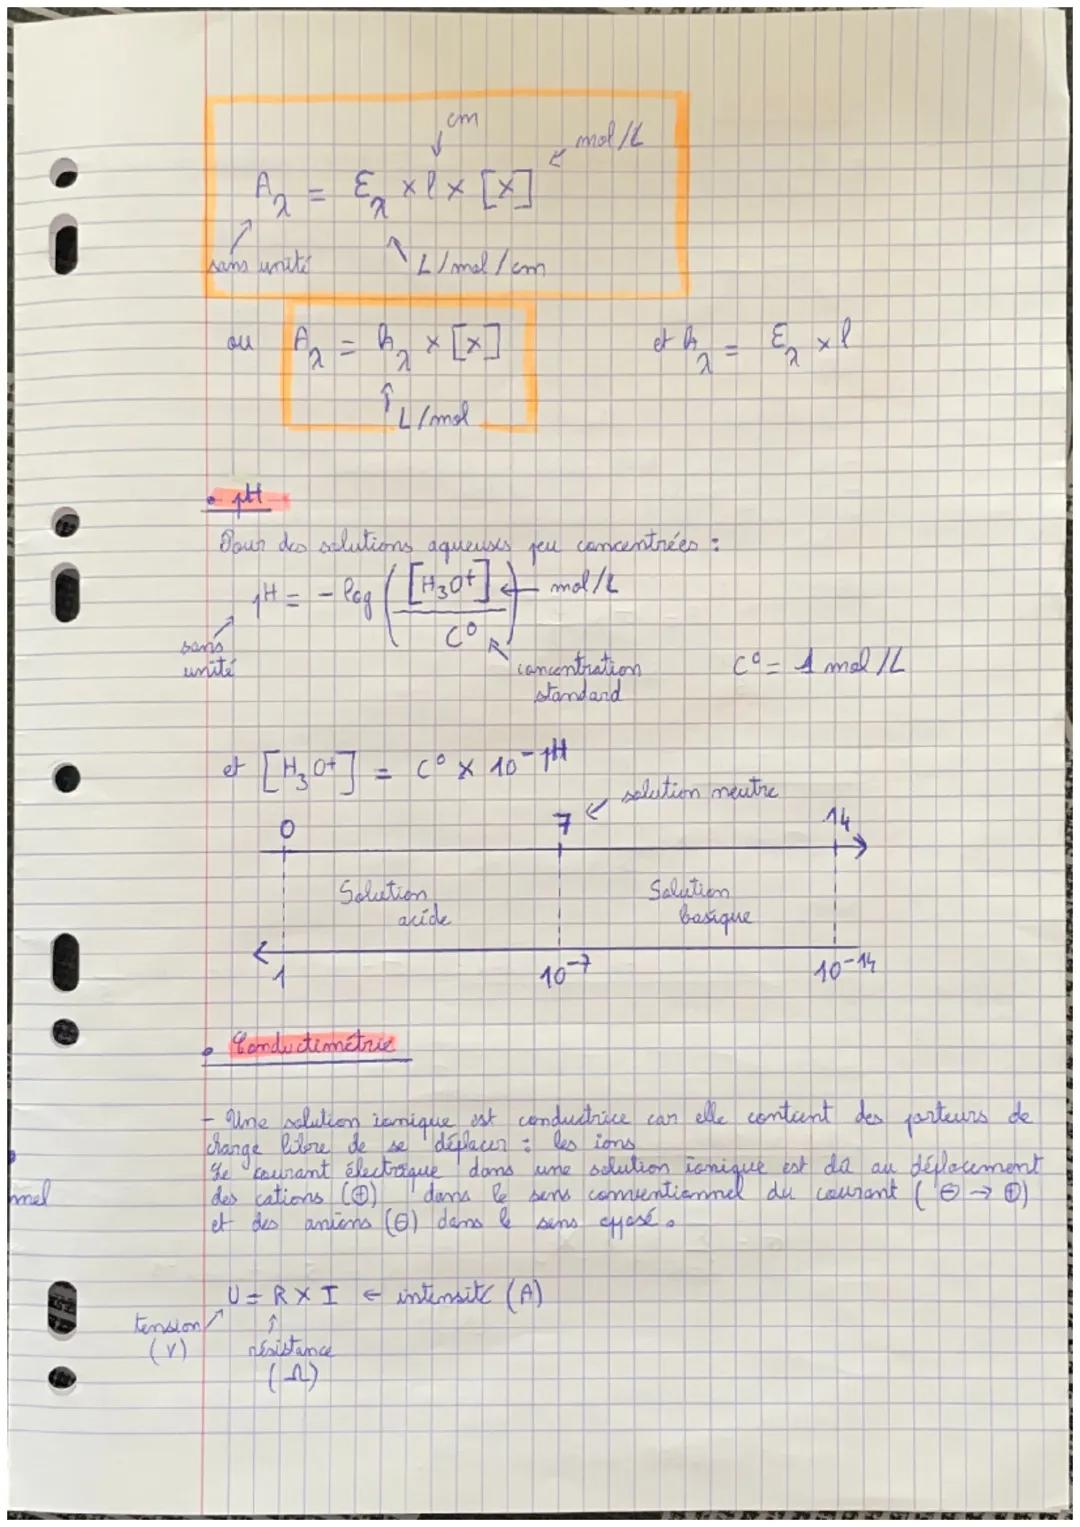 cm
mol/L
A_λ = ε_λ × l × [X]
sans unité
L/mol/cm
ou A_λ = k_λ × [X] et k_λ = ε_λ × l
L/mol
• pH
Pour des solutions aqueuses peu concentrées :
pH = - log ([H₃O⁺] / C°) ← mol/L
sans
unité
concentration
standard
C° = 1 mol/L
et [H₃O⁺] = C° × 10⁻ᵖᴴ
solution neutre
0 7 14
Solution
acide
Solution
basique
1 10⁻⁷ 10⁻¹⁴
• Conductimétrie
- Une solution ionique est conductrice car elle contient des porteurs de
charge libre de se déplacer : les ions.
Le courant électrique dans une solution ionique est dû au déplacement
des cations (⊕) dans le sens conventionnel du courant (⊖ → ⊕)
et des anions (⊖) dans le sens opposé.
nel
U = R × I ← intensité (A)
tension
(V)
résistance
(Ω)